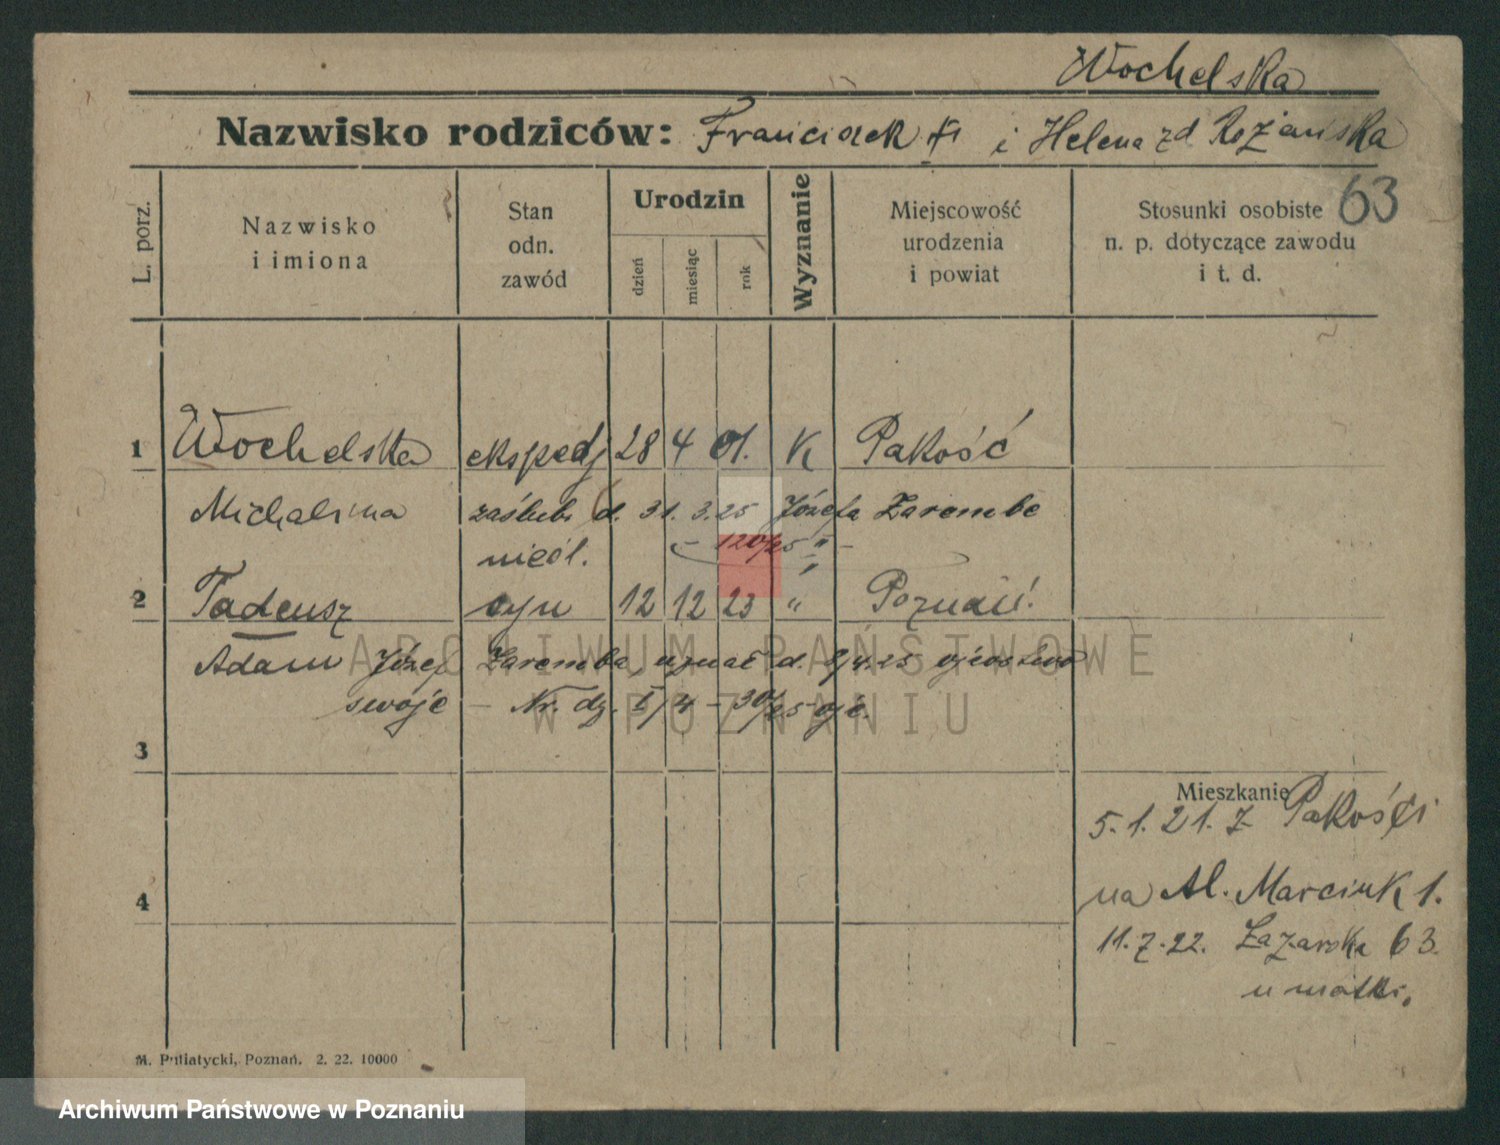 Wochelska
Nazwisko rodziców: Franciszek i Helena zd Różańska
63
L. porz.
Nazwisko
i imiona
Stan
odn.
zawód
Urodzin
dzień
miesiąc
rok
Wyznanie
Miejscowość
urodzenia
i powiat
Stosunki osobiste
n. p. dotyczące zawodu
i t. d.
1 Wochelska ekspedj 28 4 01. K Pakość
Michalina zaślubi d. 31. 3. 25 Józefa Zarembe
- 120/25 "
nieśl.
2 Tadeusz syn 12 12 23 " Poznań.
Adam Józef Zaremba, uznał d. 8/4.25 ojcostwo
swoje - Nr. dz. 5/4 - 30/25 ojc.
3
Mieszkanie
5. 1. 21. z Pakości
4
na Al. Marcink 1.
11. 7. 22. Łazarska 63.
u matki.
M. Putiatycki, Poznań. 2. 22. 10000
ARCHIWUM PAŃSTWOWE
W POZNANIU
Archiwum Państwowe w Poznaniu